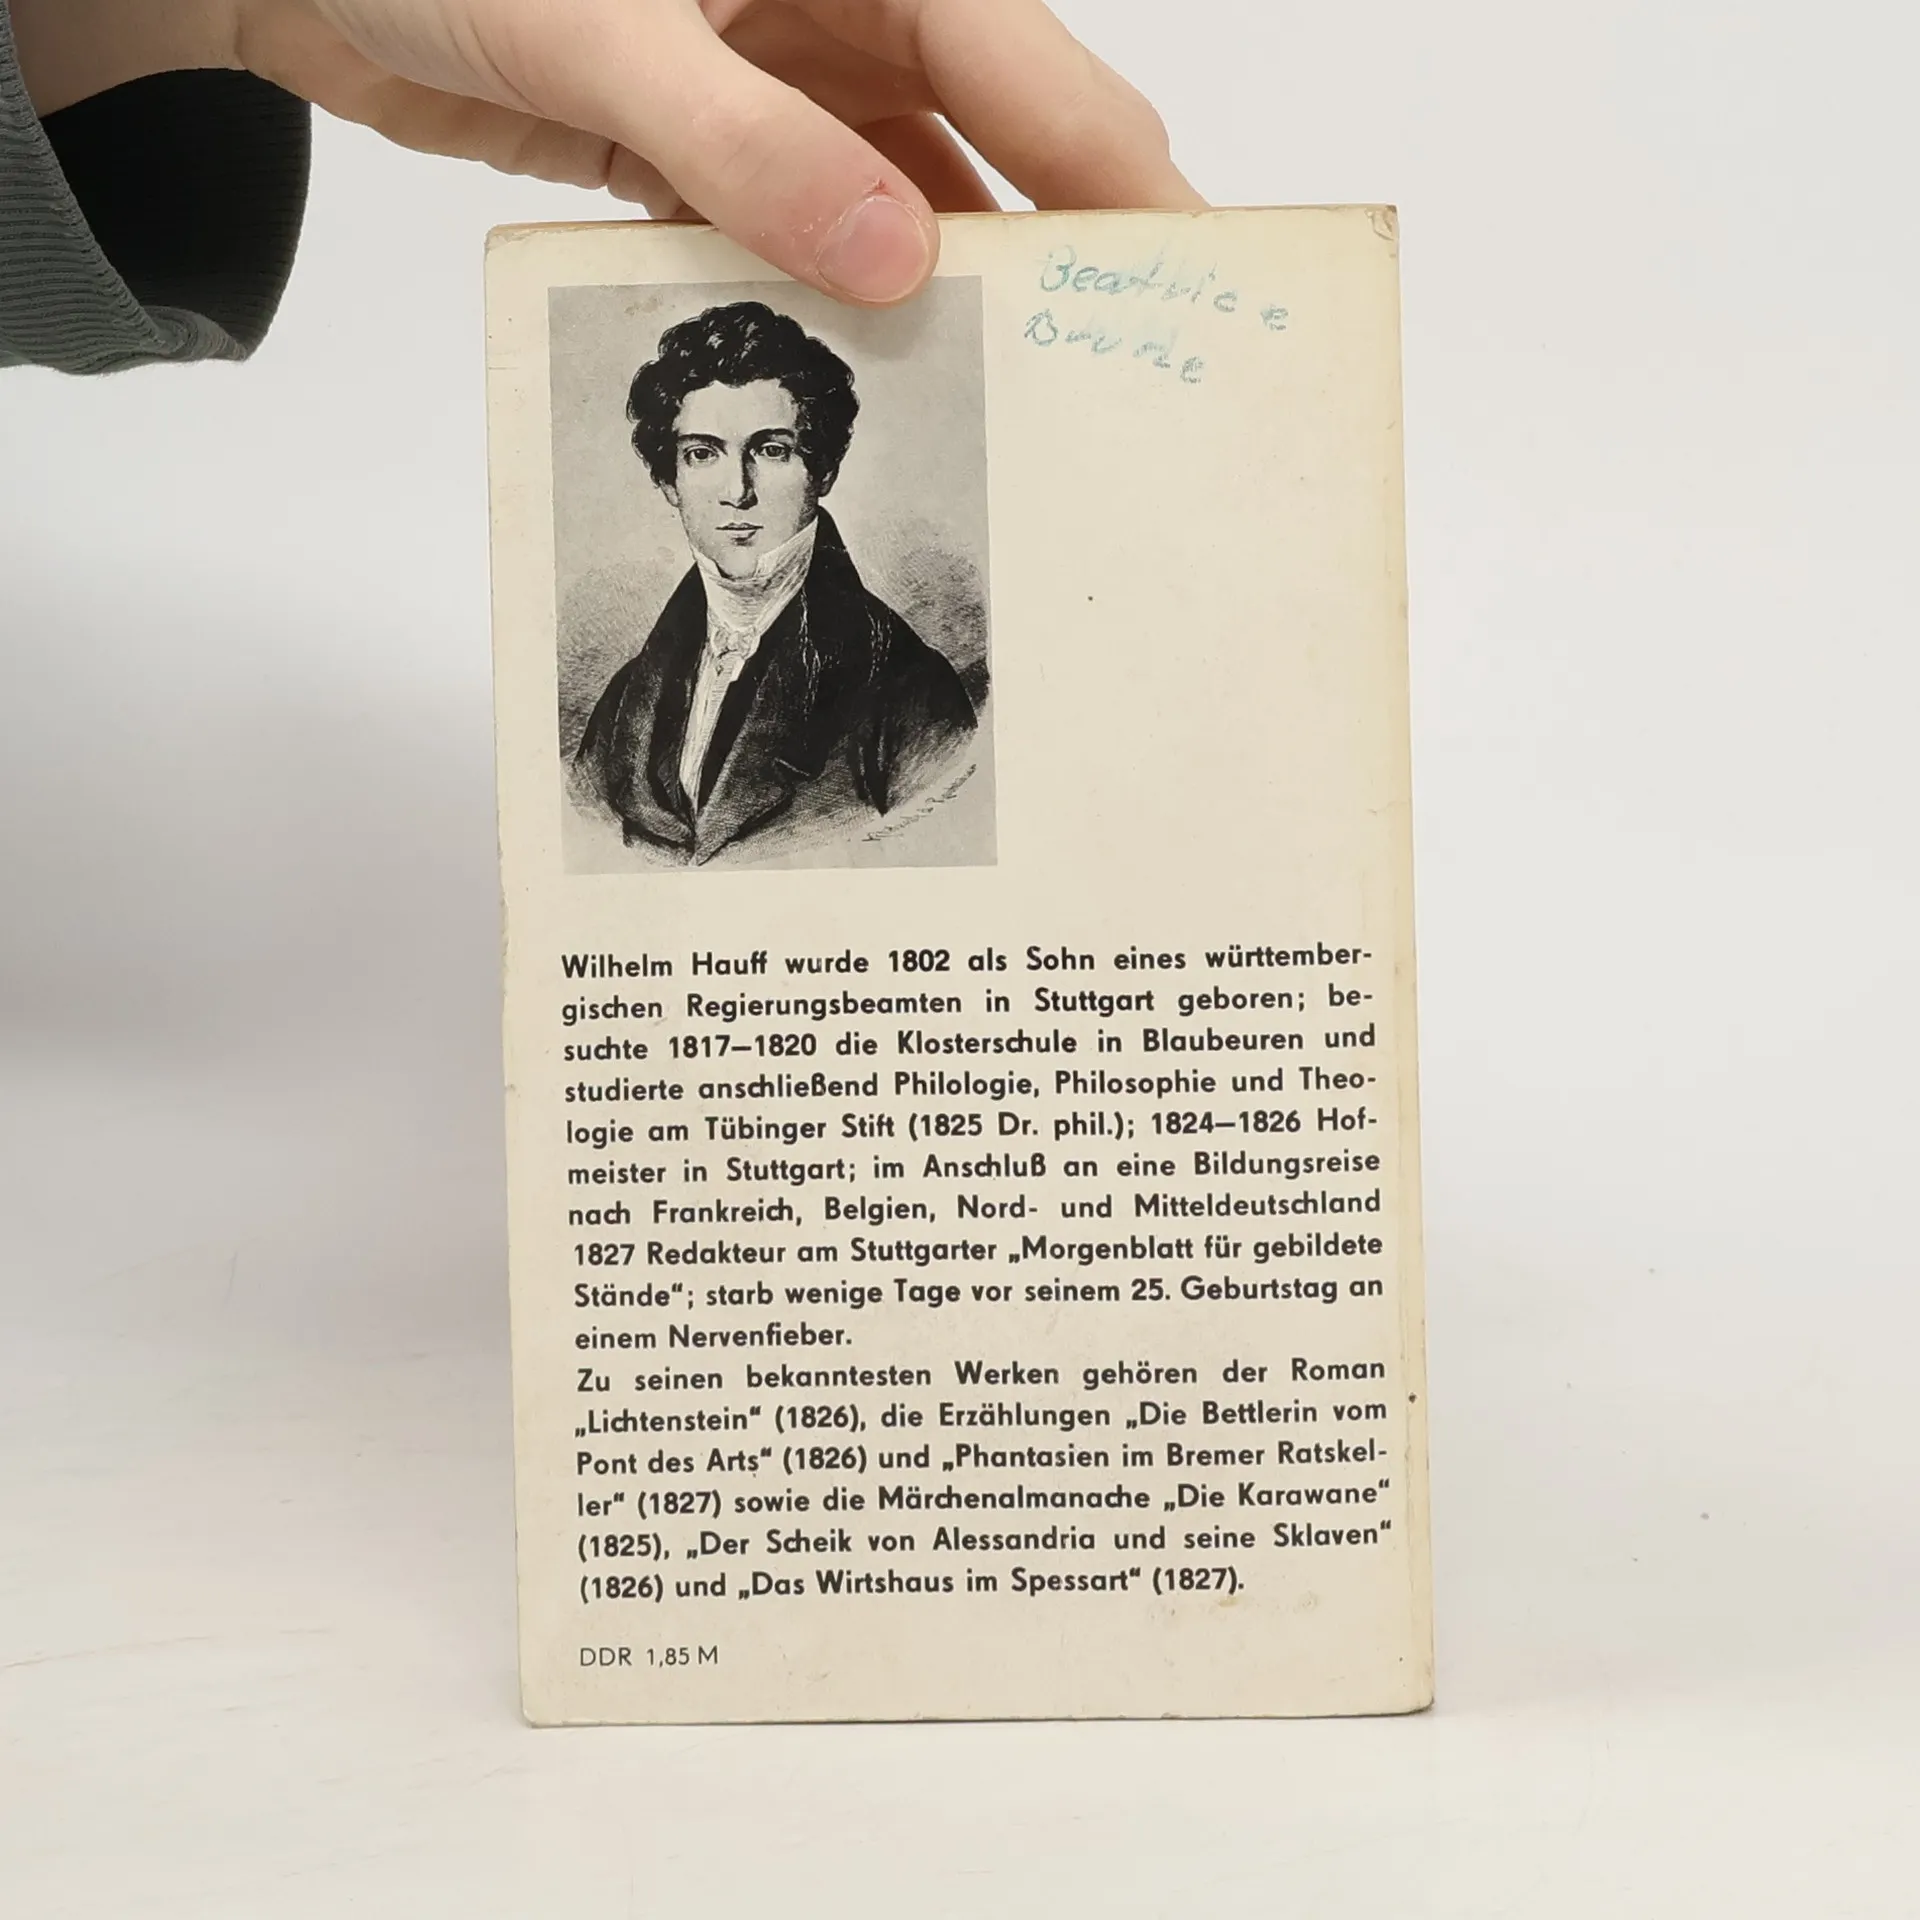 Beatrice
Wilhelm Hauff wurde 1802 als Sohn eines württember-
gischen Regierungsbeamten in Stuttgart geboren; be-
suchte 1817–1820 die Klosterschule in Blaubeuren und
studierte anschließend Philologie, Philosophie und Theo-
logie am Tübinger Stift (1825 Dr. phil.); 1824–1826 Hof-
meister in Stuttgart; im Anschluß an eine Bildungsreise
nach Frankreich, Belgien, Nord- und Mitteldeutschland
1827 Redakteur am Stuttgarter „Morgenblatt für gebildete
Stände“; starb wenige Tage vor seinem 25. Geburtstag an
einem Nervenfieber.
Zu seinen bekanntesten Werken gehören der Roman
„Lichtenstein“ (1826), die Erzählungen „Die Bettlerin vom
Pont des Arts“ (1826) und „Phantasien im Bremer Ratskel-
ler“ (1827) sowie die Märchenalmanache „Die Karawane“
(1825), „Der Scheik von Alessandria und seine Sklaven“
(1826) und „Das Wirtshaus im Spessart“ (1827).
DDR 1,85 M